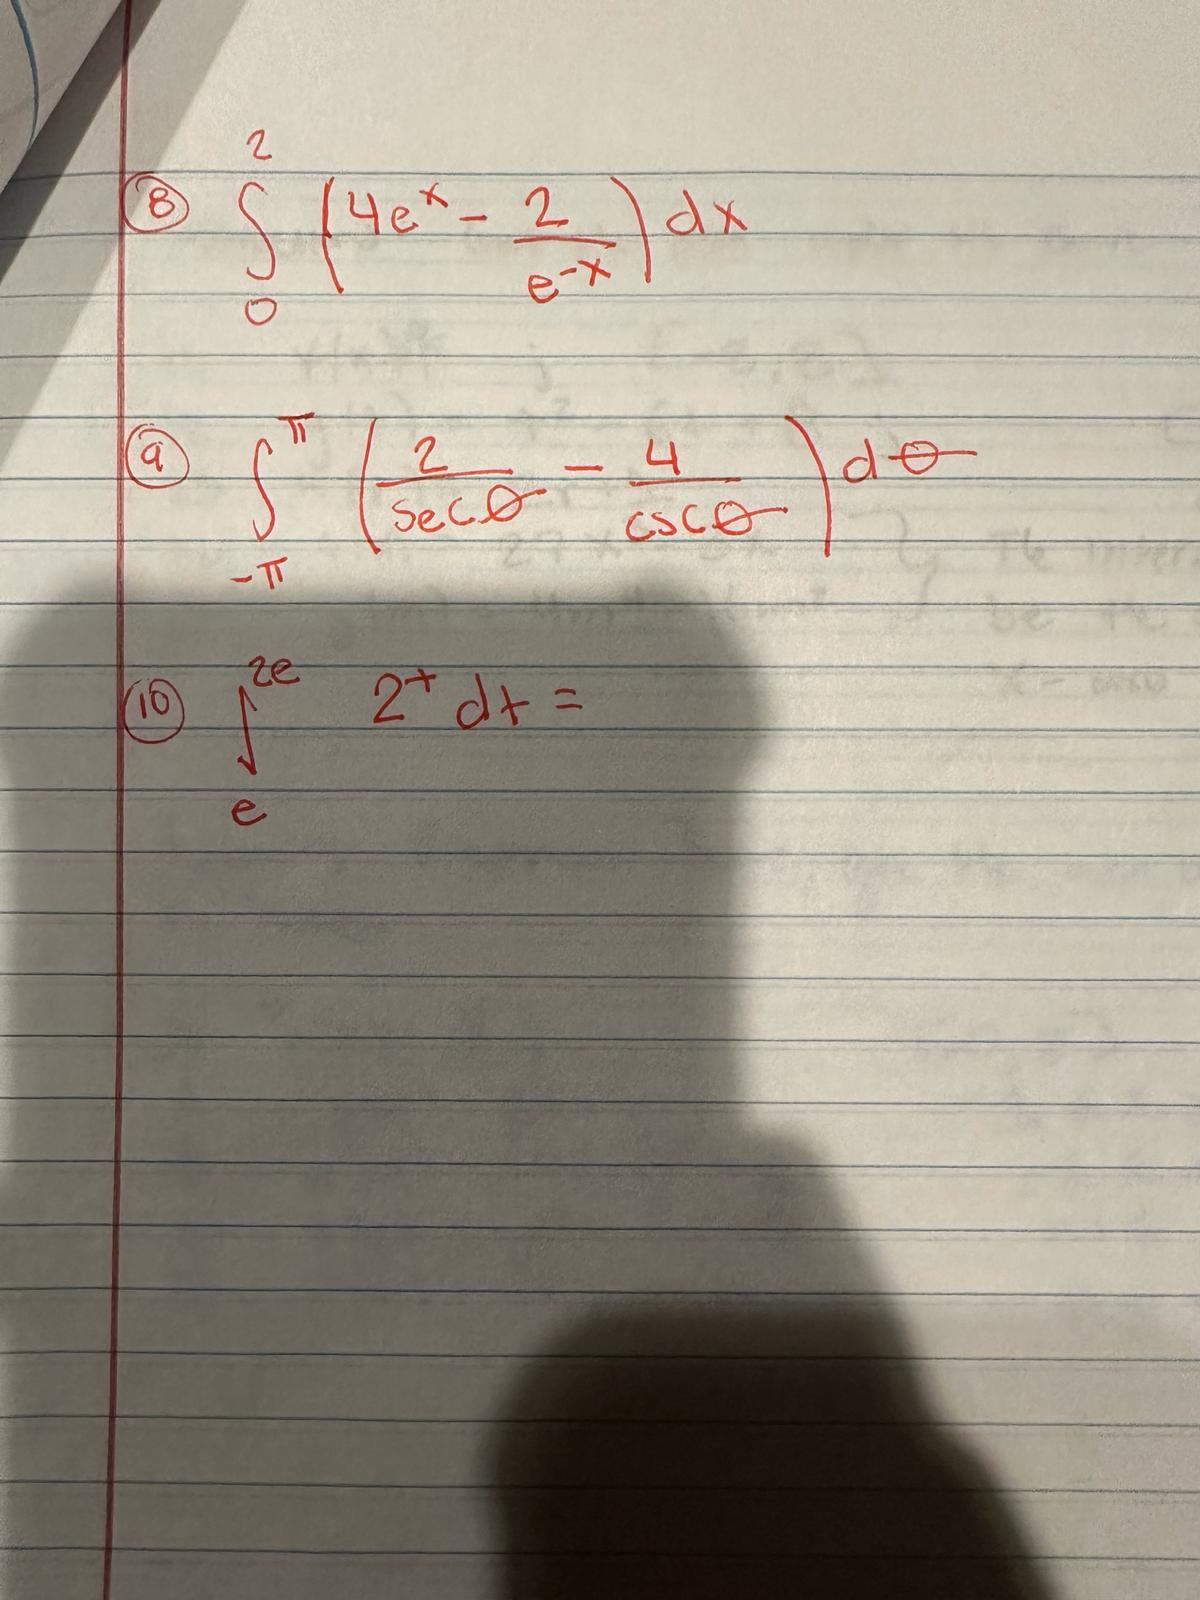 ⑧ ∫₀² (4eˣ - 2/e⁻ˣ) dx
⑨ ∫_{-π}^{π} (2/secθ - 4/cscθ) dθ
⑩ ∫ₑ^{2e} 2ᵗ dt =